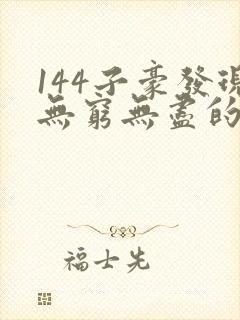 144子豪發現
無窮無盡的
福士先